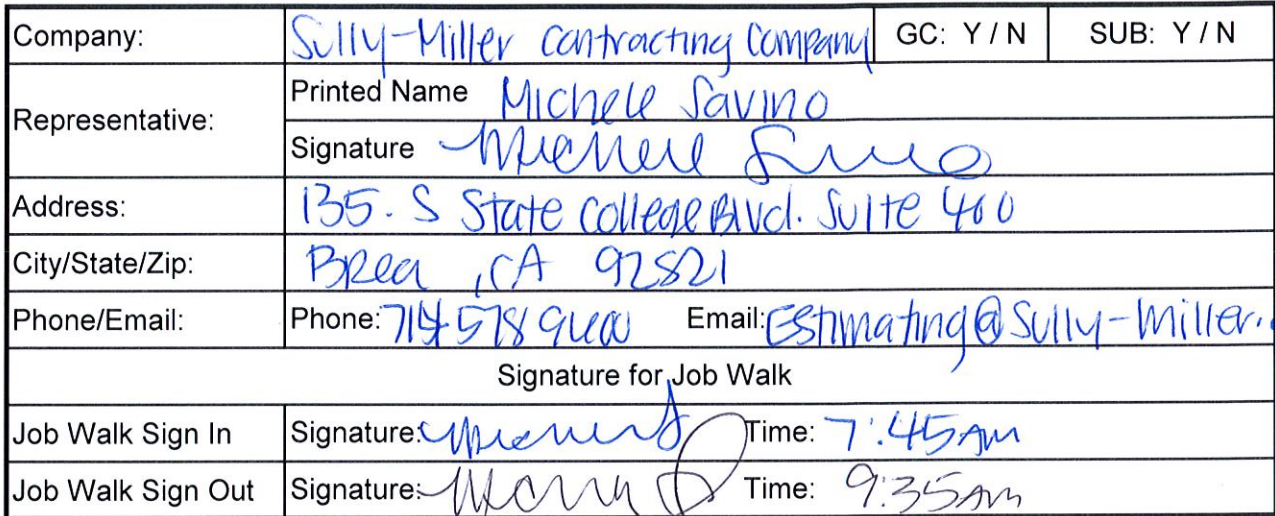 Company: Sully-Miller Contracting Company GC: Y / N SUB: Y / N
Representative: Printed Name Michele Savino
Signature Michele Savino
Address: 135. S State College Blvd. Suite 400
City/State/Zip: Brea , CA 92821
Phone/Email: Phone: 714 578 9600 Email: Estimating@Sully-Miller.
Signature for Job Walk
Job Walk Sign In Signature: Time: 7:45am
Job Walk Sign Out Signature: Time: 9:35am